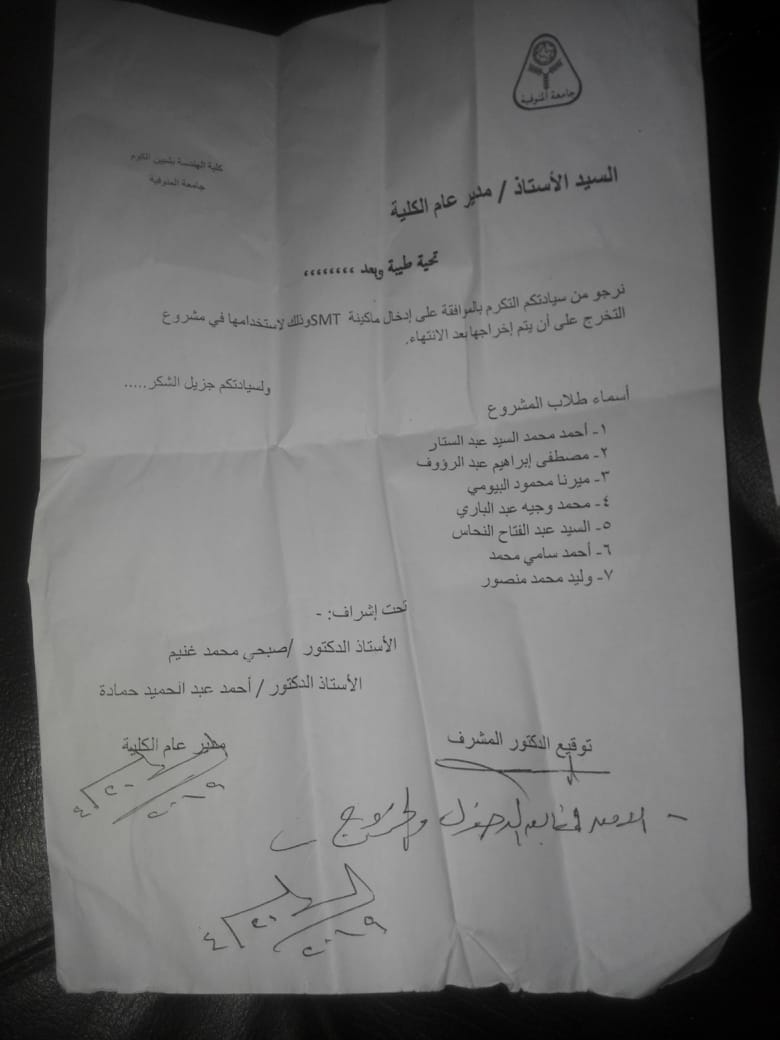 جامعة المنوفية
كلية الهندسة بشبين الكوم
جامعة المنوفية
السيد الأستاذ / مدير عام الكلية
تحية طيبة وبعد ،،،،،،،،
نرجو من سيادتكم التكرم بالموافقة على إدخال ماكينة SMT وذلك لاستخدامها في مشروع
التخرج على أن يتم إخراجها بعد الانتهاء.
ولسيادتكم جزيل الشكر.....
أسماء طلاب المشروع
١- أحمد محمد السيد عبد الستار
٢- مصطفى إبراهيم عبد الرؤوف
٣- ميرنا محمود البيومي
٤- محمد وجيه عبد الباري
٥- السيد عبد الفتاح النحاس
٦- أحمد سامي محمد
٧- وليد محمد منصور
تحت إشراف: -
الأستاذ الدكتور /صبحي محمد غنيم
الأستاذ الدكتور / أحمد عبد الحميد حمادة
توقيع الدكتور المشرف
مدير عام الكلية
٢٠١٩
- الأمن لمتابعة الدخول والخروج
٢٠١٩